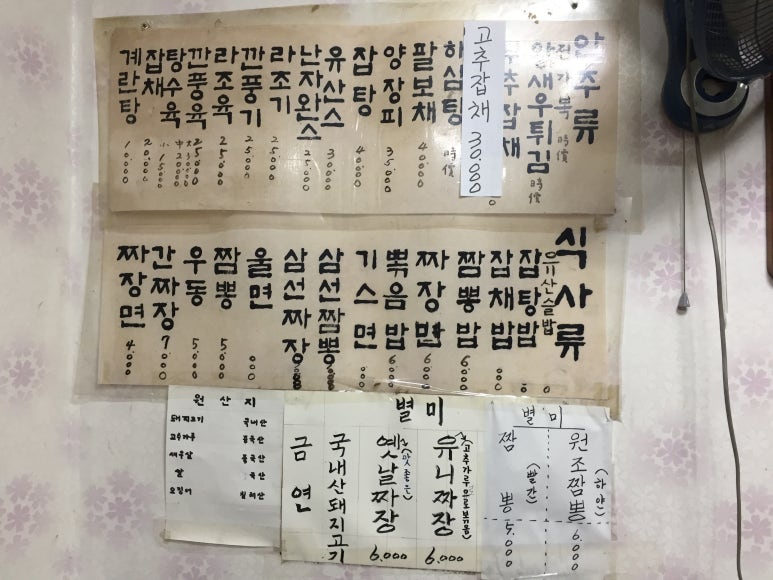 안주류
전가복 時價
새우튀김 時價
추잡채
고추잡채 30.00
하심탕 時價
팔보채 40000
양장피 35000
잡탕 40000
유산스 30000
난자완스 25000
라조기 25000
깐풍기 25000
라조육 25000
깐풍육 25000
탕수육 中 20000 小 15000
잡채 20000
계란탕 10000
식사류
유산슬밥
잡탕밥
잡채밥
짬뽕밥 6000
짜장밥 6000
볶음밥 6000
기스면
삼선짬뽕
삼선짜장
울면
짬뽕 5.000
우동 5.000
간짜장 7000
짜장면 4.000
원산지
돼지고기 국내산
고추가루 중국산
새우살 중국산
쌀 국산
오징어 원양산
별미
유니짜장 (고추가루으로볶음) 6.000
옛날짜장 (맛좋은) 6.000
국내산돼지고기
금연
별미
원조짬뽕 (하얀) 6.000
짬뽕 (빨간) 5.000